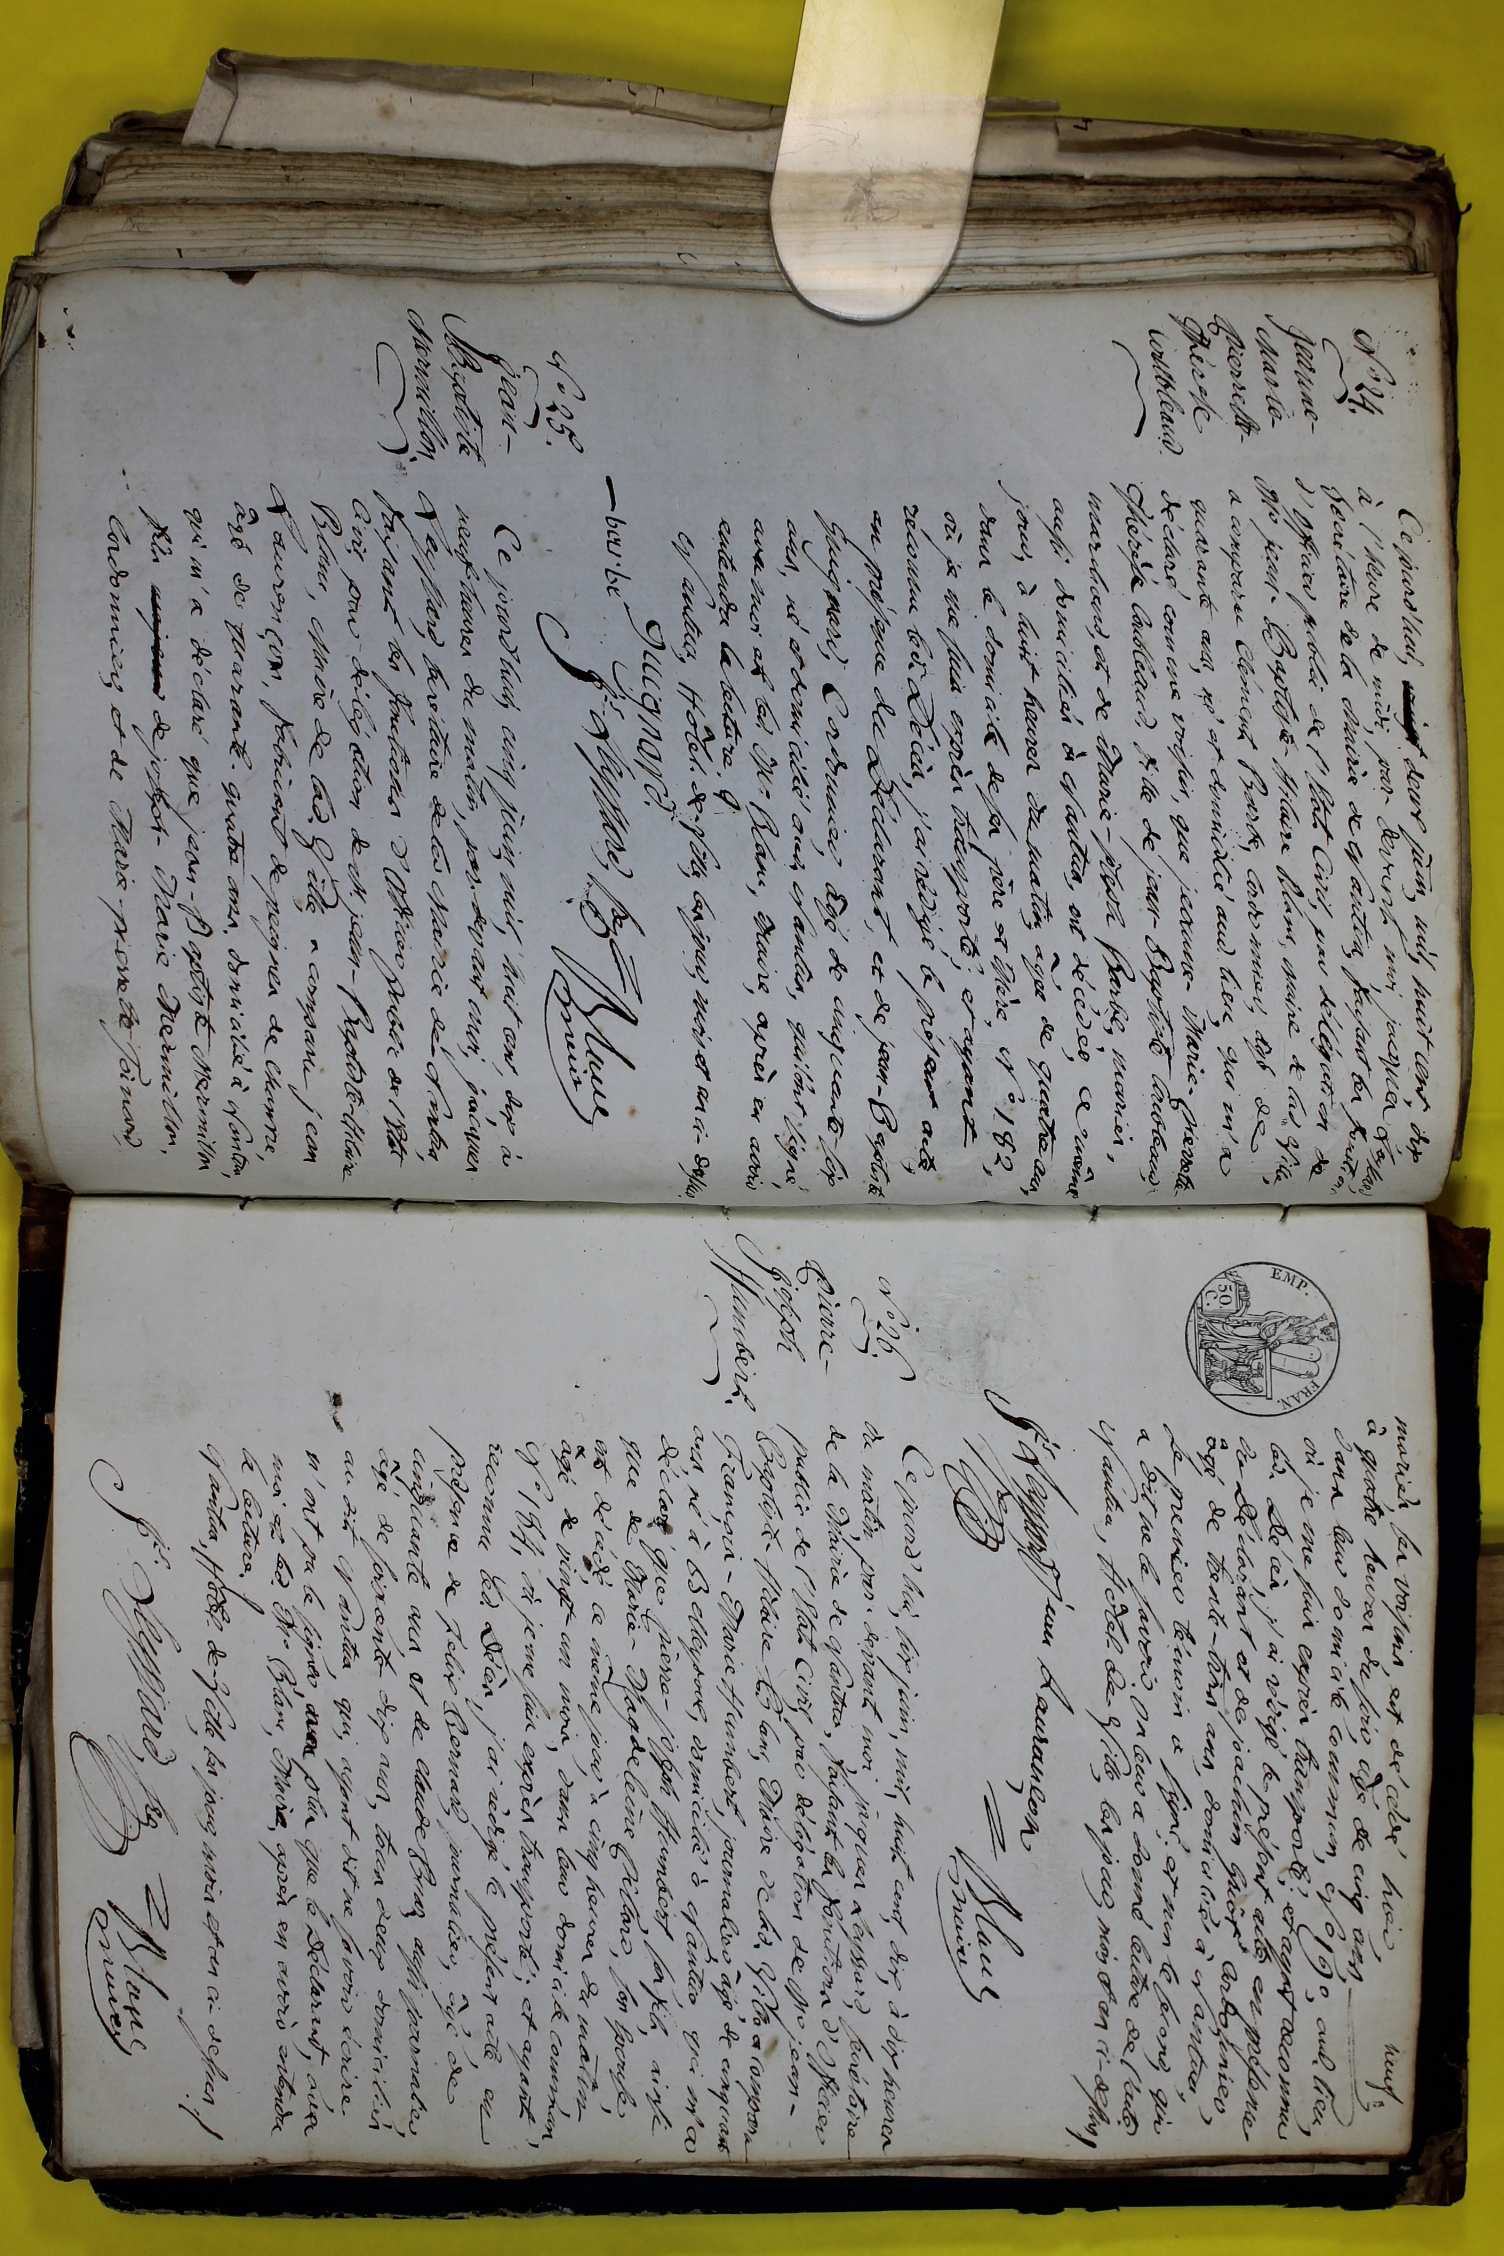 N.º 24.
Jeanne-
Marie-
Pierrette-
Thérèse
Ce jourd'hui, deux juin, mil huit cent dix
à l'heure de midi, par-devant moi jacques
Secrétaire de la Mairie de Nantua, faisant les fonctions
d'officier public de l'Etat Civil, par délégation de
Mr jean-Baptiste-Hilaire Blanc, maire de lad. Ville,
a comparu Clément Barbe, cordonnier, âgé de
quarante ans, né et domicilié aud. lieu, qui m'a
déclaré, comme voisin, que jeanne-Marie-pierrette-
Thérèse fille de jean-Baptiste
marchand, et de Marie-josèphe Barbe, mariés,
aussi domiciliés à Nantua, est décédée, ce même
jour, à huit heures du matin, âgée de quatre ans,
dans le domicile de ses père et Mère, N.º 182,
où je me suis exprès transporté; et ayant
reconnu led. Décès, j'ai rédigé le présent acte,
en présence du Déclarant, et de jean-Baptiste
Guignard, Cordonnier, âgé de cinquante-six
ans, né et domicilié aud. Nantua, qui ont signé,
avec moi et led. Mr Blanc, Maire, après en avoir
entendu la lecture.
Nantua, Hôtel-de-Ville, les jour, mois et an ci-dessus.
barbe Guignard
Jes Leyssard, Sre Blanc
maire
N.º 25.
Jean-
Baptiste
Mermillon.
Ce jourd'hui, cinq juin, mil huit cent dix, à
neuf heures du matin, par-devant moi, jacques
Leyssard, Secrétaire de la Mairie de Nantua,
faisant les fonctions d'Officier public de l'Etat
Civil, par délégation de Mr jean-Baptiste-Hilaire
Blanc, Maire de lad. Ville, a comparu jean
Laurençon, fabricant de peignes de chanvre,
âgé de quarante-quatre ans, domicilié à Nantua,
qui m'a déclaré que jean-Baptiste Mermillon,
fils de joseph-Marie Mermillon,
Cordonnier, et de Marie-pierrette
neuf.
mariés, ses voisins, est décédé hier
à quatre heures du soir, âgé de cinq ans,
dans leur domicile commun, N.º 196, aud. lieu,
où je me suis exprès transporté; et ayant reconnu
led. Décès, j'ai rédigé le présent acte, en présence
du Déclarant et de joachim cordonnier
âgé de trente-trois ans, domicilié à Nantua;
Le premier témoin a signé, et non le second, qui
a dit ne le savoir; on leur a donné lecture de l'acte
Nantua, Hôtel-de-Ville, les jour, mois et an ci-dessus.
EMP. FRAN.
50 C.
Jes Leyssard jean Laurançon
Sre Blanc
maire
N.º 26
Pierre-
Joseph
Humbert.
Ce jourd'hui, six juin, mil huit cent dix, à dix heures
du matin, par-devant moi jacques Leyssard, Secrétaire
de la Mairie de Nantua, faisant les fonctions d'officier
public de l'Etat Civil, par délégation de Mr jean-
Baptiste-Hilaire Blanc, Maire de lad. Ville a comparu
François-Marie Humbert, journalier âgé de cinquante
ans né à Belleydoux, domicilié à Nantua qui m'a
déclaré que pierre-joseph Humbert, son fils, ainsi
que de Marie-Magdeleine son épouse,
est décédé ce même jour à cinq heures du matin
âgé de vingt-un mois, dans leur domicile commun,
où je me suis exprès transporté; et ayant
reconnu led. Décès, j'ai rédigé le présent acte en
présence de Felix Bernard, journalier, âgé de
cinquante ans et de claude aussi journalier,
âgé de soixante-dix ans, tous deux domiciliés
au dit Nantua qui, ayant dit ne savoir écrire
n'ont pu le signer, non plus que le Déclarant, avec
moi et led. Mr Blanc, Maire, après en avoir entendu
la lecture.
Nantua, Hôtel-de-Ville, les jour, mois et an ci-dessus.
Jes Leyssard, Sre Blanc
maire